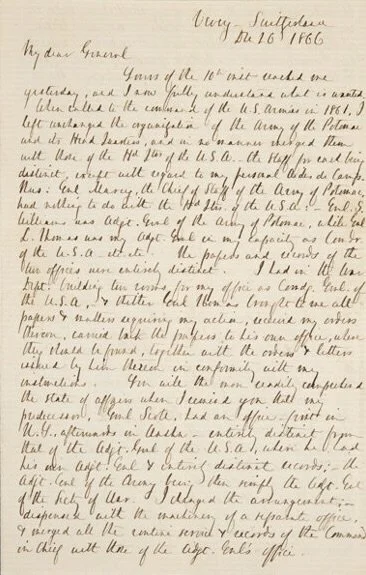 Vevey - Switzerland
Dec 26 1866
My dear General
Yours of the 10th inst reached me
yesterday, and I now fully understand what is wanted.
When called to the command of the U.S. Armies in 1861, I
left unchanged the organization of the Army of the Potomac
and its Head Quarters, and in no manner merged them
with those of the Hd Qtrs of the U.S.A. - the staff for each being
distinct, except with regard to my personal Aides de Camp.
Thus: Genl Marcy, the Chief of Staff of the Army of Potomac,
had nothing to do with the Hd Qtrs of the U.S.A: - Genl. S.
Williams was Adjt. Genl of the Army of Potomac, while Genl
L. Thomas was my Adjt Genl in my capacity as Comdr
of the U.S.A. etc etc. The papers and records of the
two offices were entirely distinct. I had in the War
Dept. building two rooms for my office as Comdg. Genl. of
the U.S.A., & thither Genl Thomas brought to me all
papers & matters requiring my action, received my orders
thereon, carried back the papers to his own office, where
they should be found, together with the orders & letters
issued by him thereon in conformity with my
instructions. You will the more readily comprehend
the state of affairs when I remind you that my
predecessor, Genl Scott, had an office, first in
N.Y., afterwards in Washn - entirely distinct from
that of the Adjt. Genl of the U.S.A., where he had
his own Adjt. Genl & entirely distinct records; - the
Adjt. Genl of the Army being then simply the Adjt. Genl
of the Secty of War. I changed the arrangement; -
dispensed with the machinery of a separate office,
& merged all the records of the Commander
in Chief with those of the Adjt. Genl's office.